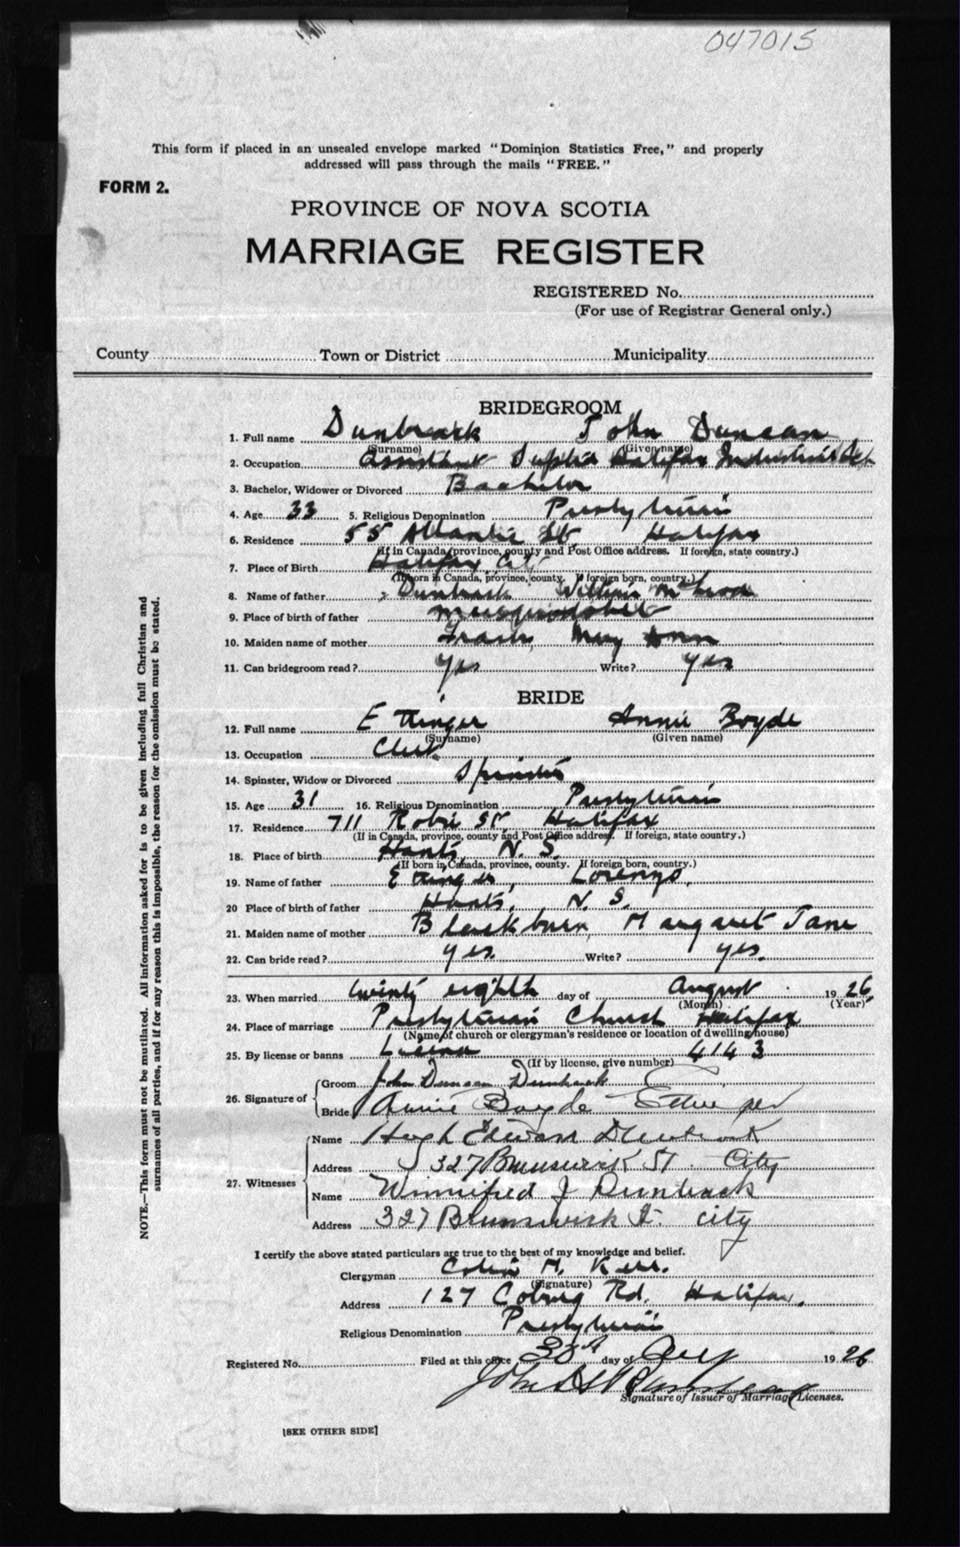 047015
This form if placed in an unsealed envelope marked "Dominion Statistics Free," and properly
addressed will pass through the mails "FREE."
FORM 2.
PROVINCE OF NOVA SCOTIA
MARRIAGE REGISTER
REGISTERED No.
(For use of Registrar General only.)
County Town or District Municipality
BRIDEGROOM
1. Full name Dunbrack John Duncan
(Surname) (Given name)
2. Occupation Assistant Halifax Industrial
3. Bachelor, Widower or Divorced Bachelor
4. Age 33 5. Religious Denomination Presbyterian
6. Residence 55 Atlantic St Halifax
(If in Canada, province, county and Post Office address. If foreign, state country.)
7. Place of Birth Halifax City
(If born in Canada, province, county. If foreign born, country.)
8. Name of father Dunbrack William McLeod
9. Place of birth of father Musquodoboit
10. Maiden name of mother Mary Ann
11. Can bridegroom read? Yes Write? Yes
BRIDE
12. Full name Ettinger Annie Boyde
(Surname) (Given name)
13. Occupation Clerk
14. Spinster, Widow or Divorced Spinster
15. Age 31 16. Religious Denomination Presbyterian
17. Residence 711 Robie St Halifax
(If in Canada, province, county and Post Office address. If foreign, state country.)
18. Place of birth Hants, N. S.
(If born in Canada, province, county. If foreign born, country.)
19. Name of father Ettinger, Lorenzo,
20 Place of birth of father Hants, N. S.
21. Maiden name of mother Blackburn, Margaret Jane
22. Can bride read? Yes. Write? Yes.
23. When married twenty eighth day of August 1926
(Month) (Year)
24. Place of marriage Presbyterian Church Halifax
(Name of church or clergyman's residence or location of dwelling house)
25. By license or banns License 4143
(If by license, give number)
26. Signature of
Groom John Duncan Dunbrack
Bride Annie Boyde Ettinger
27. Witnesses
Name Hugh Edward Dunbrack
Address 327 Brunswick St. City
Name Winnifred J Dunbrack
Address 327 Brunswick St. City
I certify the above stated particulars are true to the best of my knowledge and belief.
Clergyman Colin M. Kerr.
(Signature)
Address 127 Coburg Rd. Halifax.
Religious Denomination Presbyterian
Registered No. Filed at this office 30th day of Aug 1926
John
Signature of Issuer of Marriage Licenses.
[SEE OTHER SIDE]
NOTE.—This form must not be mutilated. All information asked for is to be given including full Christian and
surnames of all parties, and if for any reason this is impossible, the reason for the omission must be stated.